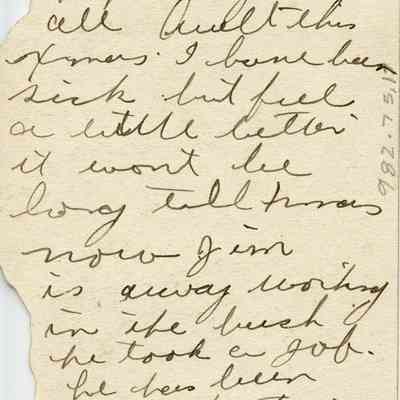 all Quilt this
Xmas. I have been
sick but feel
a little better
it wont be
long till Xmas
now Jim
is away working
in the bush
he took a job.
he has been
982.75.17